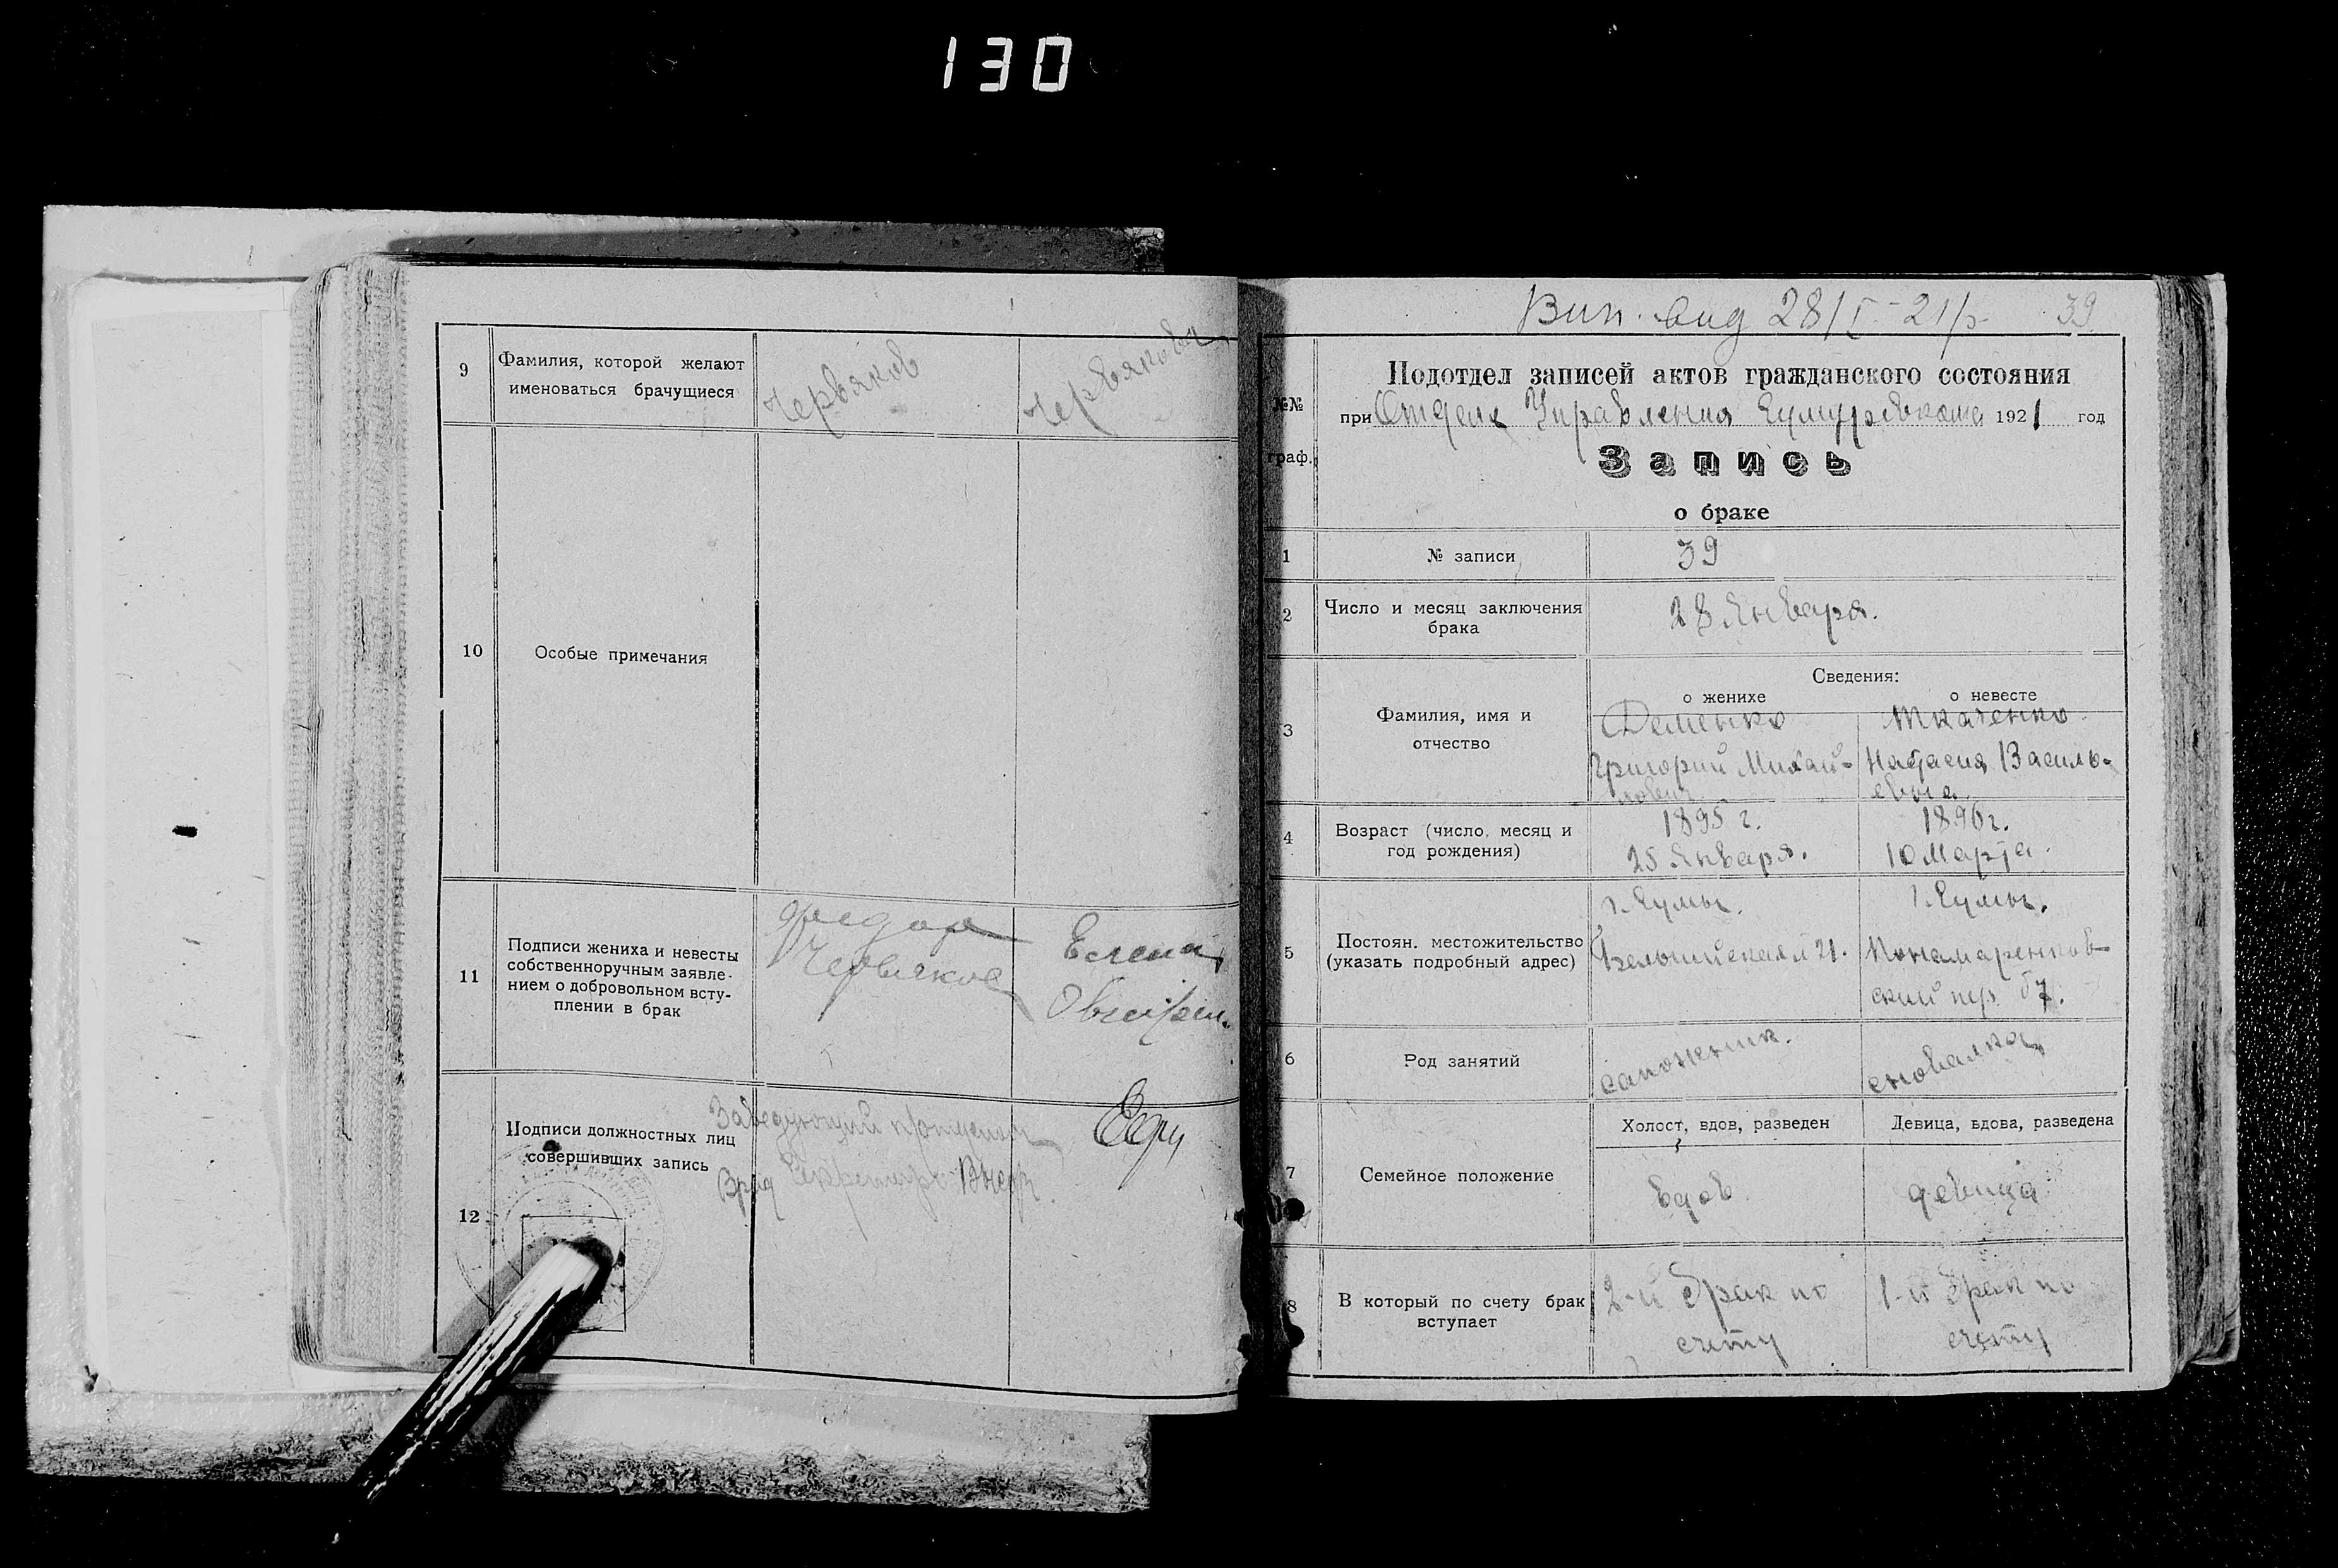 130
9
Фамилия, которой желают
именоваться брачущиеся
Червяков
Червякова
10
Особые примечания
11
Подписи жениха и невесты
собственноручным заявле-
нием о добровольном всту-
плении в брак
Федор
Червяков
Елена
12
Подписи должностных лиц
совершивших запись
Заведующий
Врид Секретаря
39
28/I-21
№№
граф.
Подотдел записей актов гражданского состояния
при Отделе Управления 1921 год
Запись
о браке
1
№ записи
39
2
Число и месяц заключения
брака
28 Января.
3
Фамилия, имя и
отчество
Сведения:
о женихе
о невесте
Деменко
Григорий Михай-
лович
Ткаченко
Настасия Василь-
евна
4
Возраст (число, месяц и
год рождения)
1895 г.
25 Января.
1896 г.
10 Марта.
5
Постоян. местожительство
(указать подробный адрес)
г. Сумы.
21.
г. Сумы.
Понамаренков-
ский пер.
6
Род занятий
сапожник.
сновалка
7
Семейное положение
Холост, вдов, разведен
Девица, вдова, разведена
вдов.
девица
8
В который по счету брак
вступает
2-й брак по
счету
1-й брак по
счету